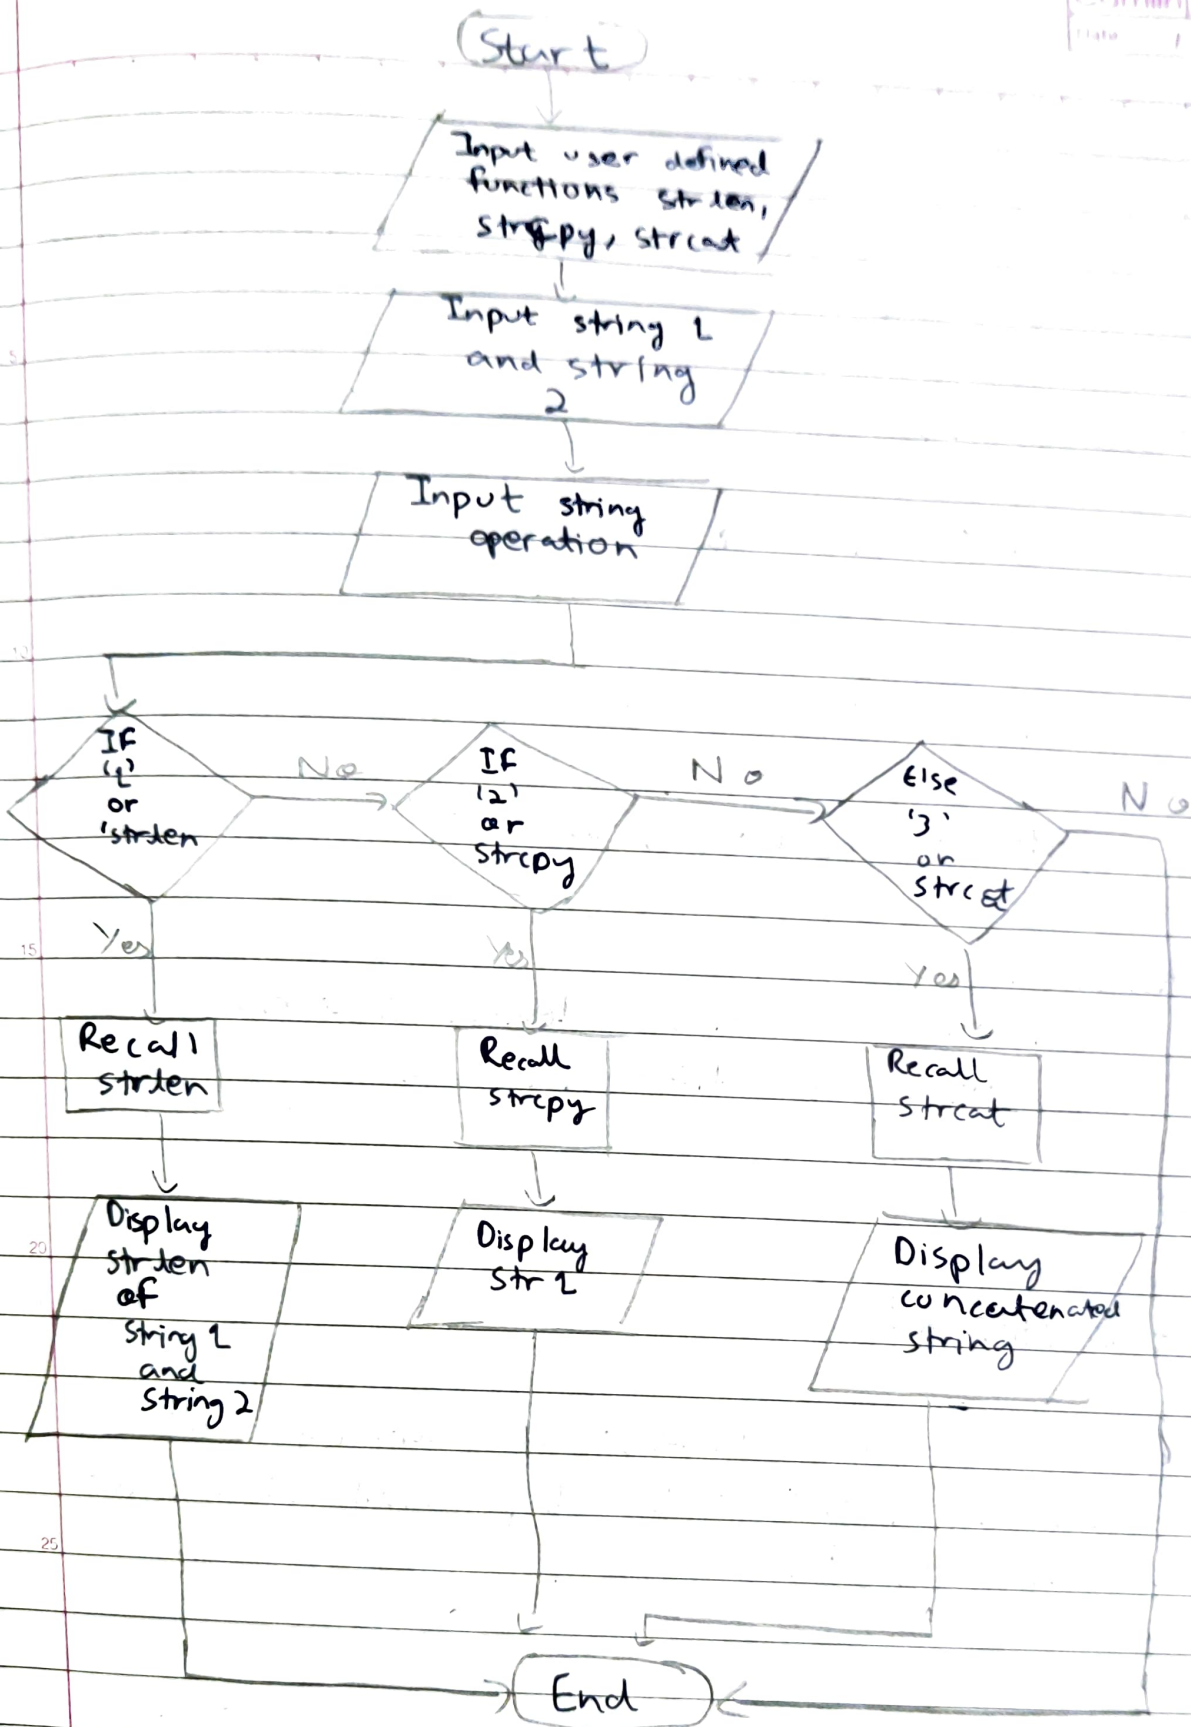 Start
Input user defined
functions strlen,
strcpy, strcat
Input string 1
and string
2
Input string
operation
If
'1'
or
'strlen
No
If
'2'
or
strcpy
No
Else
'3'
or
strcat
No
Yes
Yes
Yes
Recall
strlen
Recall
strcpy
Recall
strcat
Display
strlen
of
string 1
and
string 2
Display
str 1
Display
concatenated
string
End
5
10
15
20
25